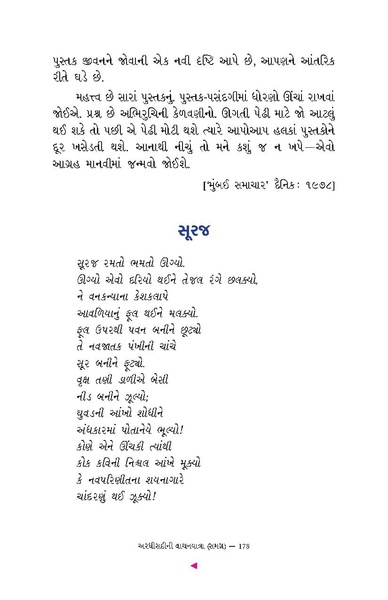 પુસ્તક જીવનને જોવાની એક નવી દૃષ્ટિ આપે છે, આપણને આંતરિક
રીતે ઘડે છે.
મહત્ત્વ છે સારાં પુસ્તકનું. પુસ્તક-પસંદગીમાં ધોરણો ઊંચાં રાખવાં
જોઈએ. પ્રશ્ન છે અભિરુચિની કેળવણીનો. ઊગતી પેઢી માટે જો આટલું
થઈ શકે તો પછી એ પેઢી મોટી થશે ત્યારે આપોઆપ હલકાં પુસ્તકોને
દૂર ખસેડતી થશે. આનાથી નીચું તો મને કશું જ ન ખપે—એવો
આગ્રહ માનવીમાં જન્મવો જોઈશે.
['મુંબઈ સમાચાર' દૈનિક: ૧૯૭૮]
સૂરજ
સૂરજ રમતો ભમતો ઊગ્યો.
ઊગ્યો એવો દરિયો થઈને તેજલ રંગે છલક્યો,
ને વનકન્યાના કેશકલાપે
આવળિયાનું ફૂલ થઈને મલક્યો.
ફૂલ ઉપરથી પવન બનીને છૂટ્યો
તે નવજાતક પંખીની ચાંચે
સૂર બનીને ફૂટ્યો.
વૃક્ષ તણી ડાળીએ બેસી
નીડ બનીને ઝૂલ્યો;
ઘુવડની આંખો શોધીને
અંધકારમાં પોતાનેયે ભૂલ્યો!
કોણે એને ઊંચકી ત્યાંથી
કોક કવિની નિશ્ચલ આંખે મૂક્યો
કે નવપરિણીતના શયનાગારે
ચાંદરણું થઈ ઝૂક્યો!
અરધીસદીની વાચનયાત્રા (સમગ્ર) — 178